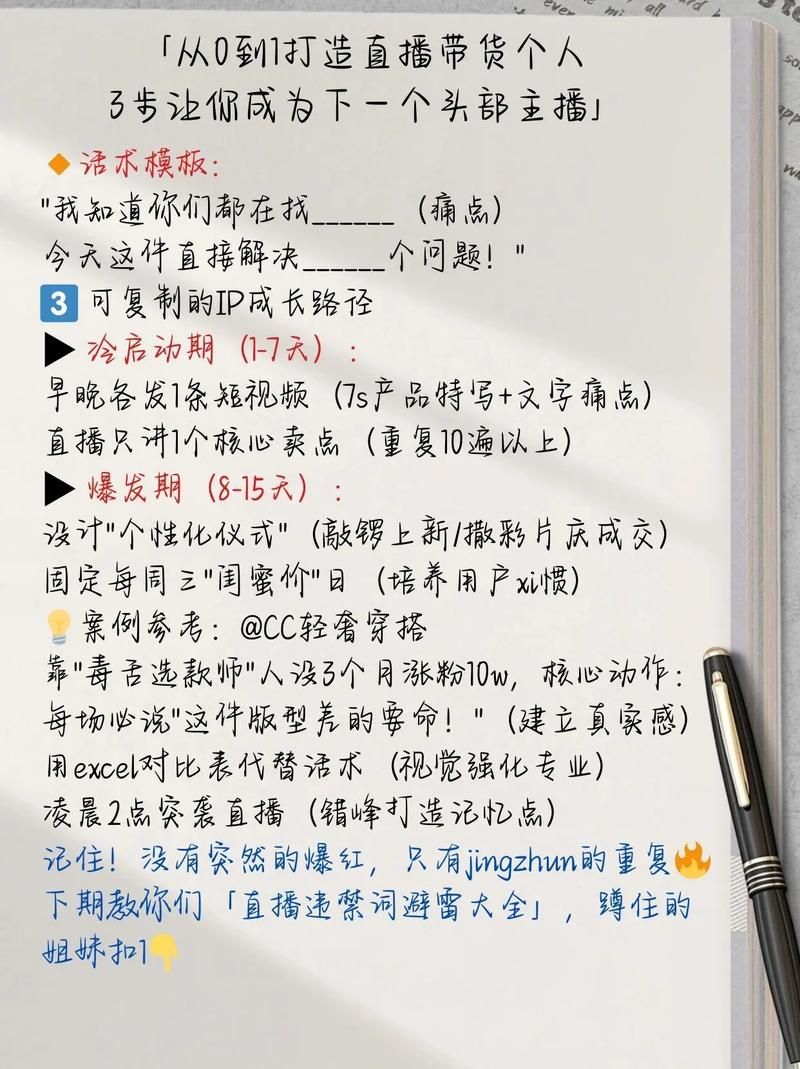 「从0到1打造直播带货个人
3步让你成为下一个头部主播」
🔸话术模板：
"我知道你们都在找______（痛点）
今天这件直接解决______个问题！"
3️⃣ 可复制的IP成长路径
▶ 冷启动期（1-7天）：
早晚各发1条短视频（7s产品特写+文字痛点）
直播只讲1个核心卖点（重复10遍以上）
▶ 爆发期（8-15天）：
设计"个性化仪式"（敲锣上新/撒彩片庆成交）
固定每周三"闺蜜价"日（培养用户xi惯）
💡案例参考：@CC轻奢穿搭
靠"毒舌选款师"人设3个月涨粉10w，核心动作：
每场必说"这件版型差的要命！"（建立真实感）
用excel对比表代替话术（视觉强化专业）
凌晨2点突袭直播（错峰打造记忆点）
记住！没有突然的爆红，只有jingzhun的重复🔥
下期教你们「直播违禁词避雷大全」，蹲住的
姐妹扣1👇